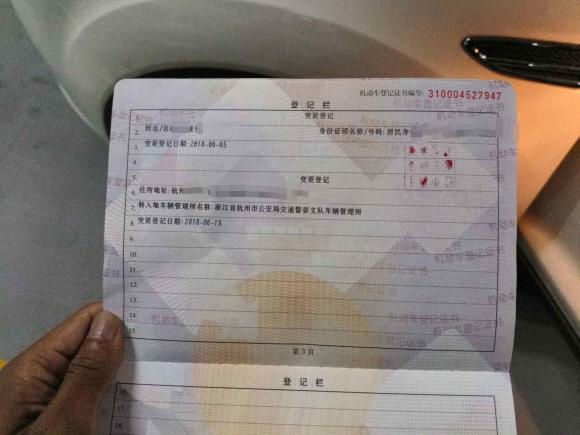 机动车登记证书编号: 310004527947
登记栏
1. 变更登记
2. 姓名/名 身份证明名称/号码:居民身
3. 变更登记日期:2018-06-05
4.
5. 变更登记
6. 住所地址:杭州
7. 转入地车辆管理所名称:浙江省杭州市公安局交通警察支队车辆管理所
8. 变更登记日期:2018-06-19
9.
10.
11.
12.
13.
14.
15.
第3页
登记栏
16.
17.
18.